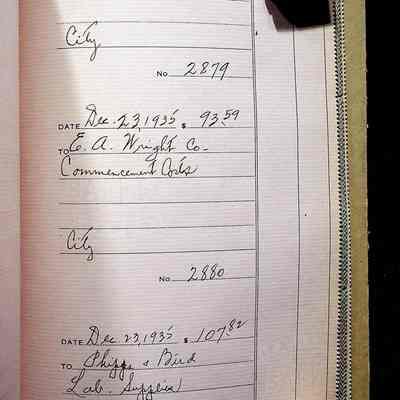 City
No 2879
DATE Dec. 23, 1935 $ 93.59
TO E. A. Wright Co.
Commencement Cards
City
No 2880
DATE Dec 23, 1935 $ 107.82
TO Phipps & Bird
Lab. Supplies